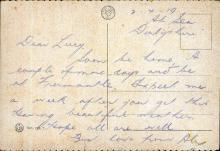 2-4-19
At Sea
Dear Lucy
Soon be home. A
couple more days and be
at Fremantle. Expect me
a week after you get this
Having beautiful weather
Hope all are well
love from